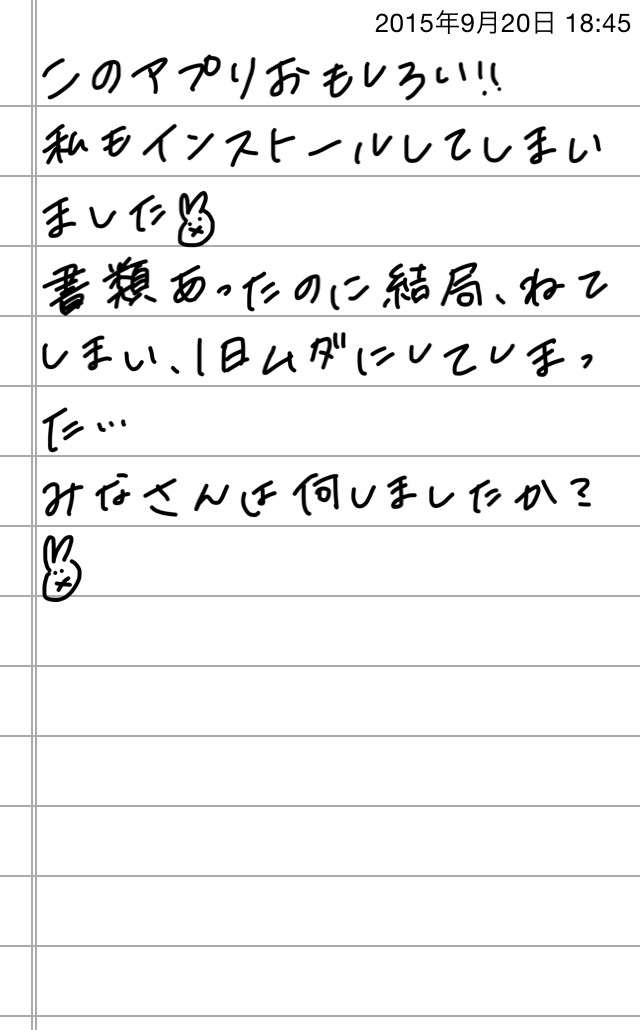 2015年9月20日 18:45
このアプリおもしろい!!
私もインストールしてしまい
ました
書類あったのに結局、ねて
しまい、1日ムダにしてしまっ
た…
みなさんは何しましたか?